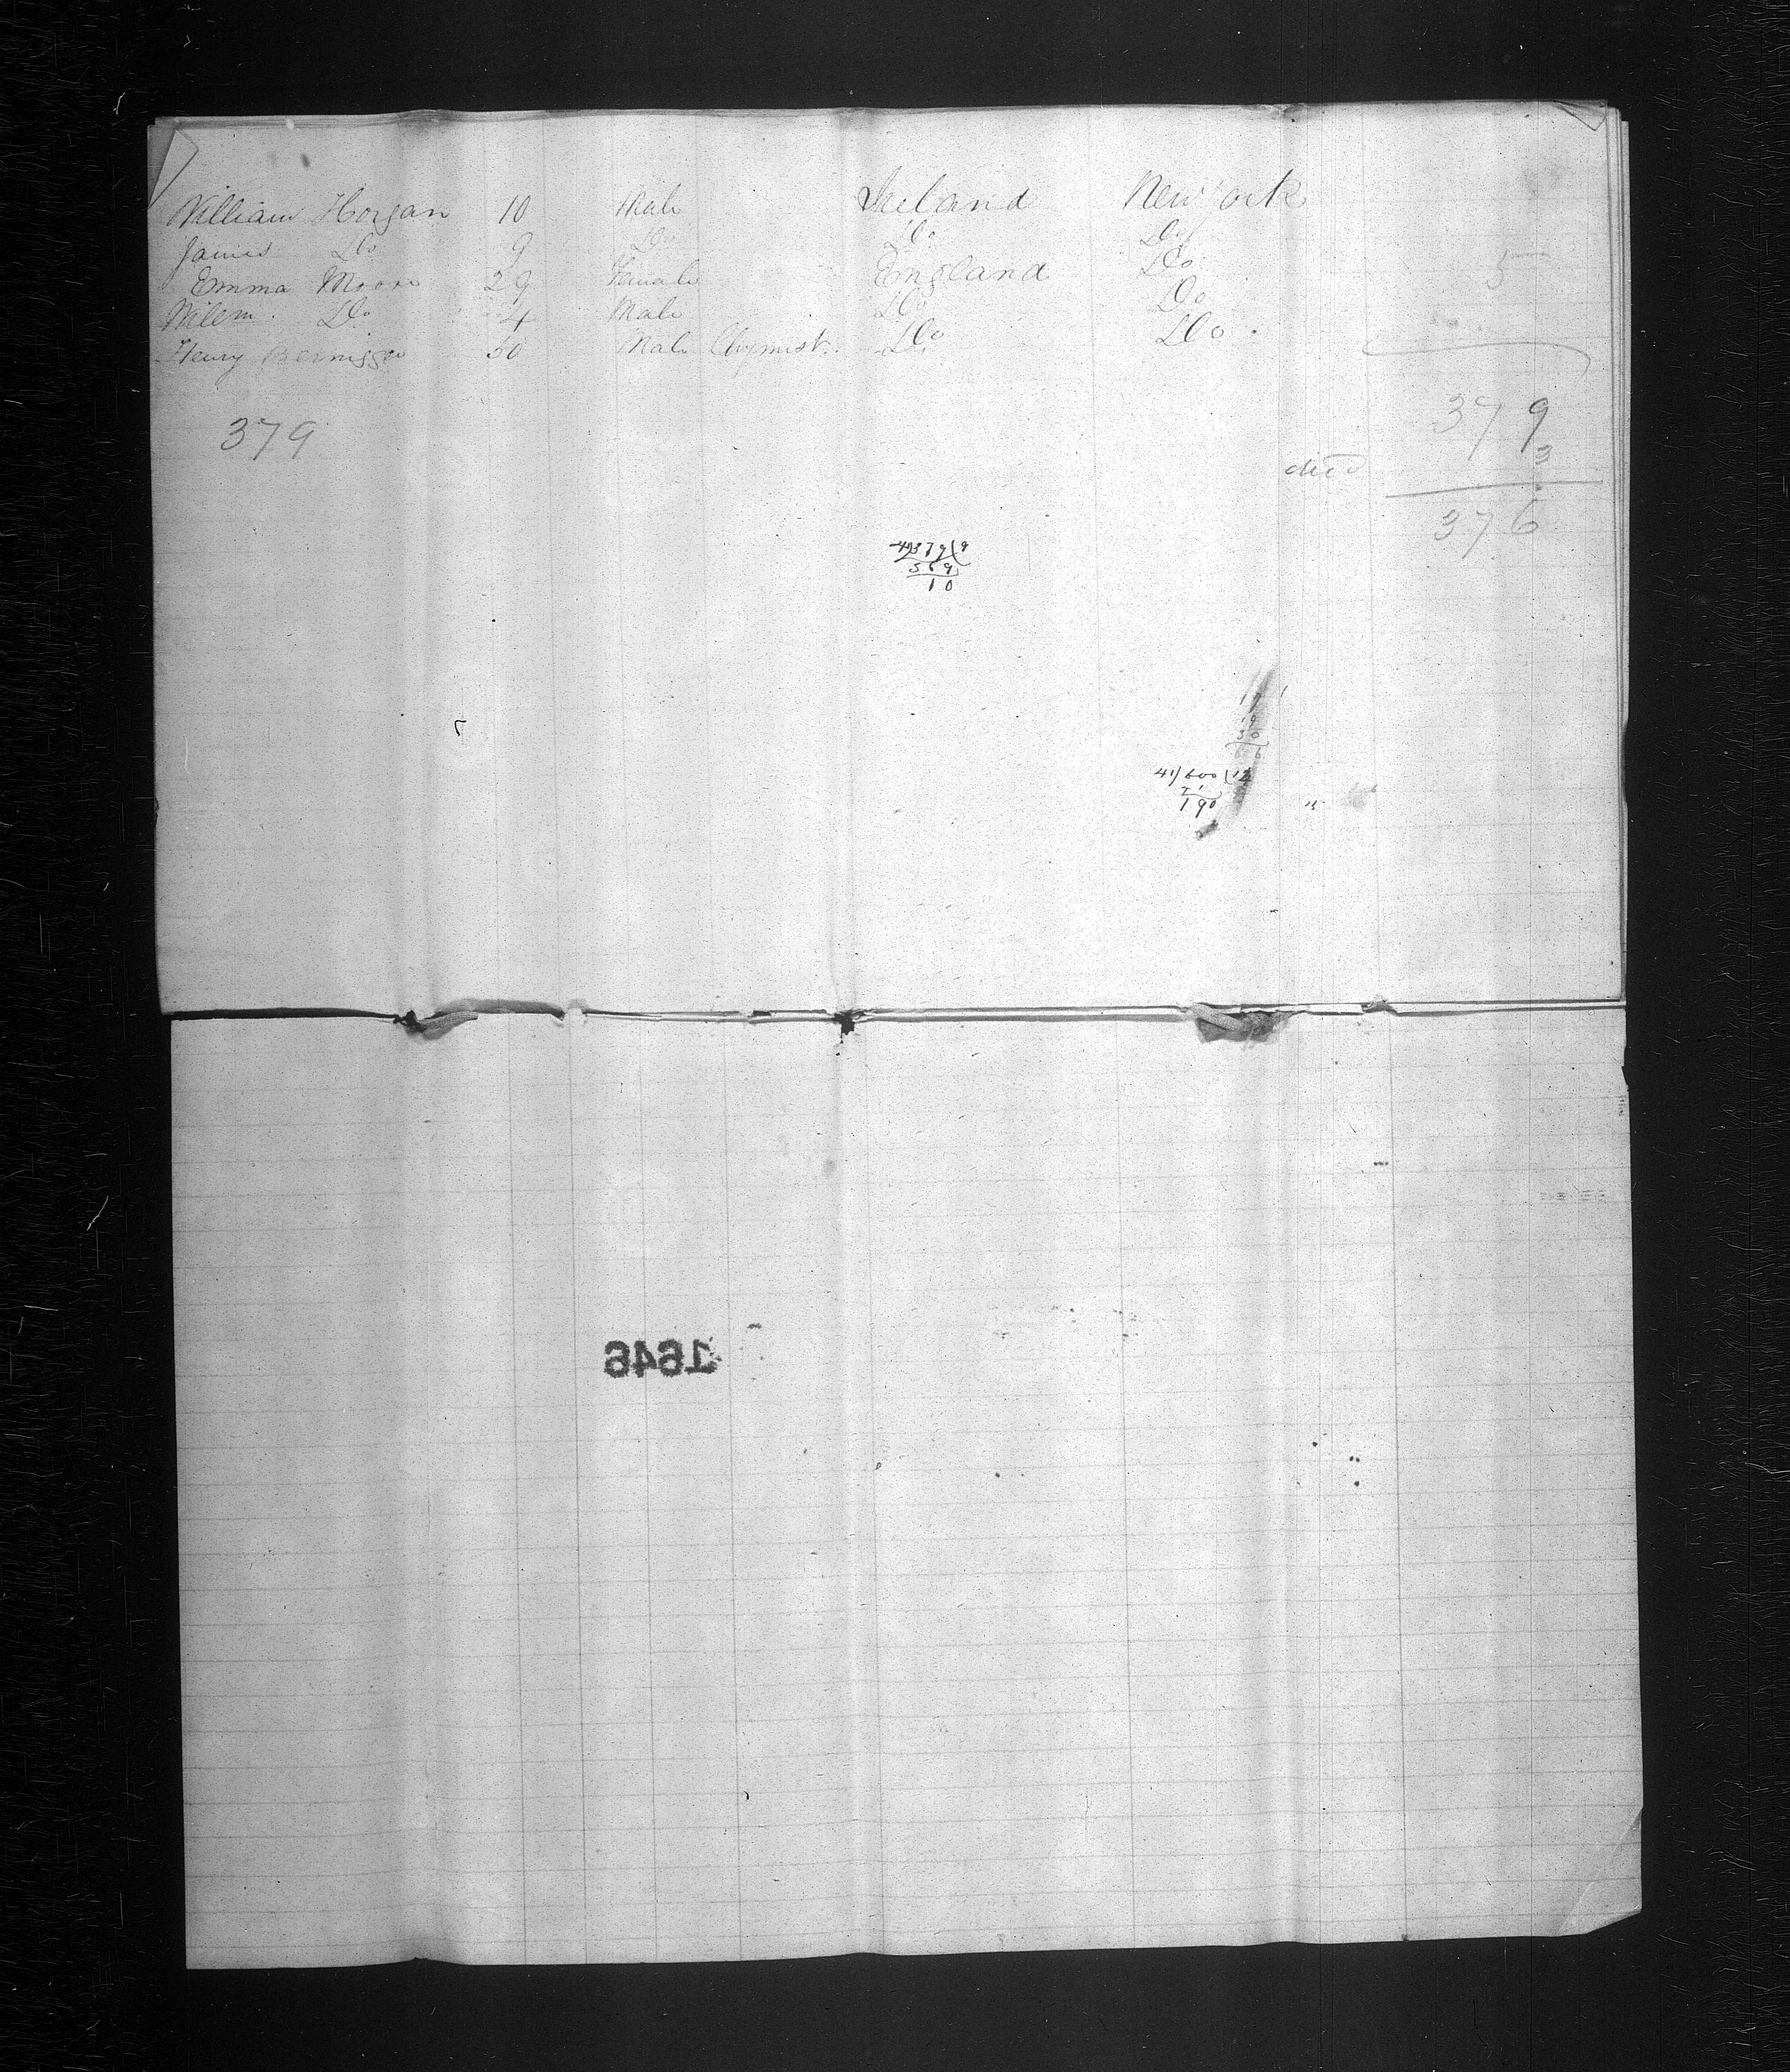 William Horgan 10 Male Ireland New York
James Do 9 Do Do Do
Emma Moore 29 Female England Do 5
Wilem. Do 4 Male Do Do
Henry 30 Male Chymist Do Do
379 379
died 3
376
369
10
41) 600 (12
190
1646